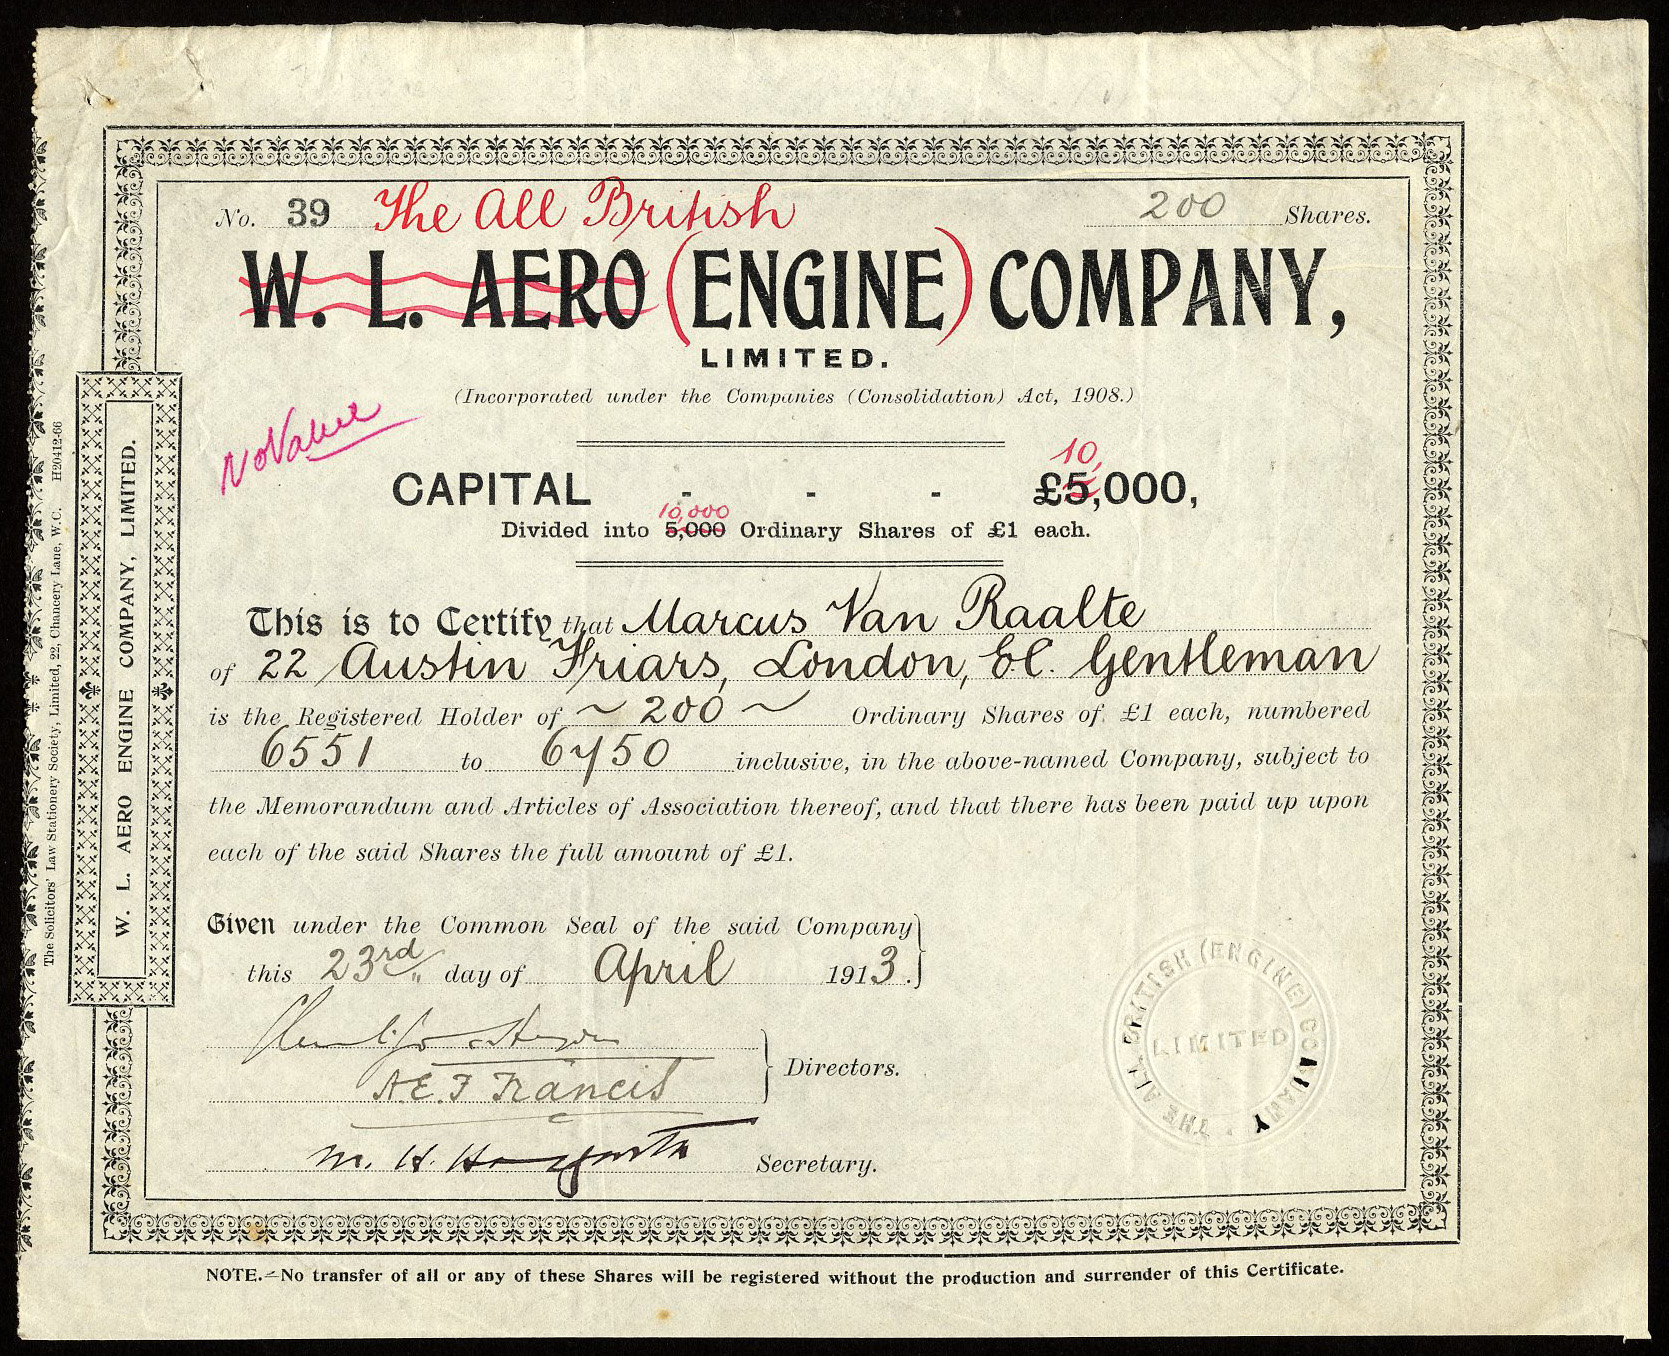 No. 39 The All British 200 Shares.
W. L. AERO (ENGINE) COMPANY,
LIMITED.
(Incorporated under the Companies (Consolidation) Act, 1908.)
No Value
10,
CAPITAL - - - £5,000,
10,000
Divided into 5,000 Ordinary Shares of £1 each.
This is to Certify that Marcus Van Raalte
of 22 Austin Friars, London, E.C. Gentleman
is the Registered Holder of ~ 200 ~ Ordinary Shares of £1 each, numbered
6551 to 6750 inclusive, in the above-named Company, subject to
the Memorandum and Articles of Association thereof, and that there has been paid up upon
each of the said Shares the full amount of £1.
Given under the Common Seal of the said Company
this 23rd day of April 1913.
A.E.F. Francis
Directors.
M. H. Secretary.
THE ALL BRITISH (ENGINE) COMPANY
LIMITED
NOTE.—No transfer of all or any of these Shares will be registered without the production and surrender of this Certificate.
W. L. AERO ENGINE COMPANY, LIMITED.
The Solicitors' Law Stationery Society, Limited, 22, Chancery Lane, W.C. H20412-66